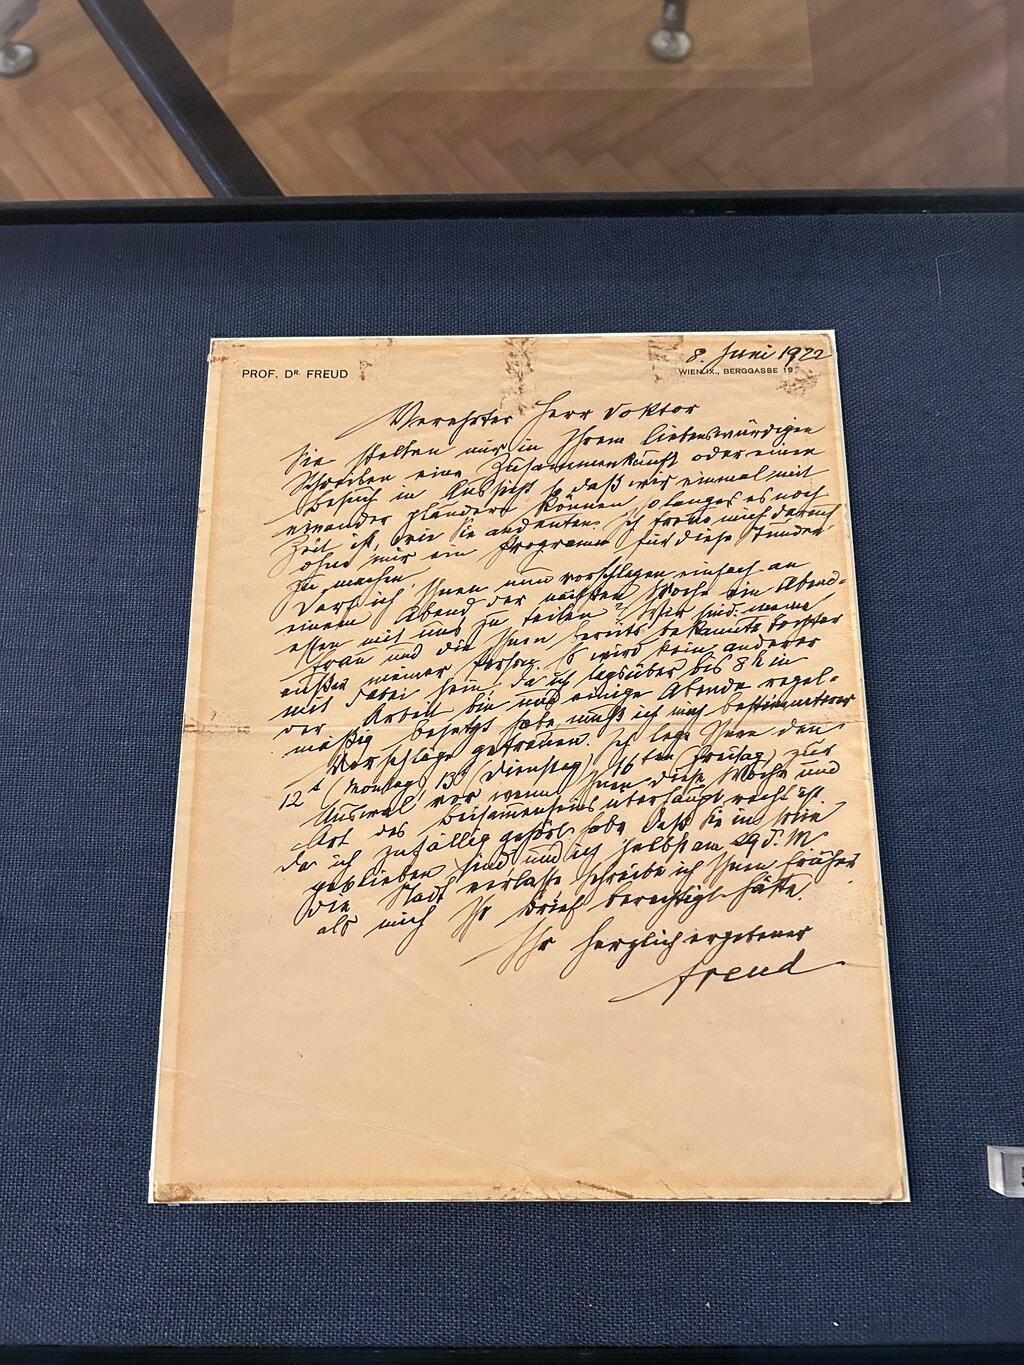 8. Juni 1922
PROF. DR. FREUD
WIEN, IX., BERGGASSE 19.
Verehrter Herr Doktor
Sie stellten mir in Ihrem liebenswürdigen
Schreiben eine Zusammenkunft oder einen
Besuch in Aussicht, so daß wir einmal mit
einander plaudern können, so lange es noch
Zeit ist, wie Sie andeuten. Ich freue mich darauf
ohne mir ein Programm für diese Stunden
zu machen.
Darf ich Ihnen nun vorschlagen einfach an
einem Abend der nächsten Woche ein Abend-
essen mit uns zu teilen? Wir sind: meine
Frau und die Ihnen bereits bekannte Tochter
außer meiner Person. Es wird kein anderer
mit dabei sein. Da ich tagsüber bis 8 h in
der Arbeit bin und einige Abende regel-
mäßig besetzt habe, muß ich mich bestimmterer
Vorschläge getrauen. Ich lege Ihnen den
12t (Montag) 13t (Dienstag) 16ten (Freitag) zur
Auswal vor wenn Ihnen diese Woche und
Art des Beisammenseins überhaupt recht ist.
Da ich zufällig gehört habe daß Sie in Wien
geblieben sind und ich selbst am 29 d. M
die Stadt verlasse schreibe ich Ihnen früher
als mich Ihr Brief berechtigt hätte.
Ihr herzlich ergebener
Freud